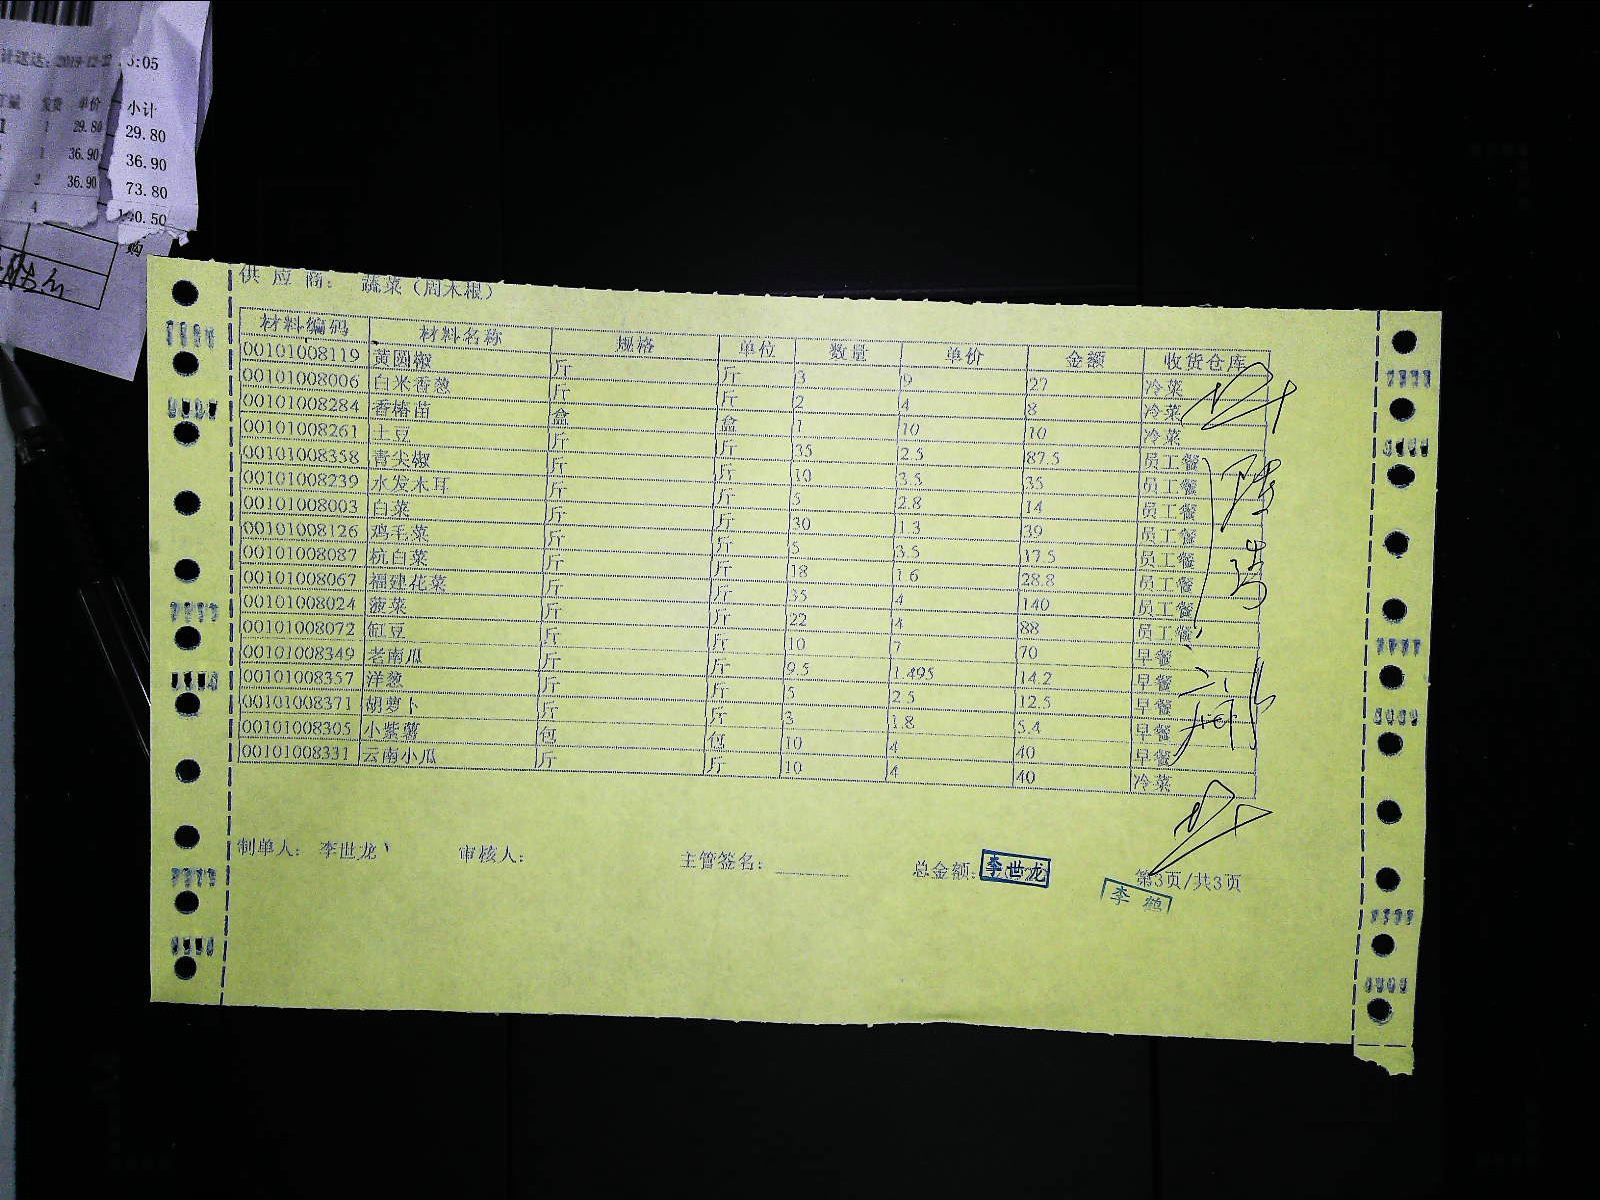 计送达: 2019-12-22
5:05
单价 小计
1 29.80 29.80
1 36.90 36.90
2 36.90 73.80
4 140.50
购
供应商: 蔬菜(周木根)
材料编码 材料名称 规格 单位 数量 单价 金额 收货仓库
00101008119 黄圆椒 斤 斤 3 9 27 冷菜
00101008006 白米香葱 斤 斤 2 4 8 冷菜
00101008284 香椿苗 盒 盒 1 10 10 冷菜
00101008261 土豆 斤 斤 35 2.5 87.5 员工餐
00101008358 青尖椒 斤 斤 10 3.5 35 员工餐
00101008239 水发木耳 斤 斤 5 2.8 14 员工餐
00101008003 白菜 斤 斤 30 1.3 39 员工餐
00101008126 鸡毛菜 斤 斤 5 3.5 17.5 员工餐
00101008087 杭白菜 斤 斤 18 1.6 28.8 员工餐
00101008067 福建花菜 斤 斤 35 4 140 员工餐
00101008024 菠菜 斤 斤 22 4 88 员工餐
00101008072 缸豆 斤 斤 10 7 70 早餐
00101008349 老南瓜 斤 斤 9.5 1.495 14.2 早餐
00101008357 洋葱 斤 斤 5 2.5 12.5 早餐
00101008371 胡萝卜 斤 斤 3 1.8 5.4 早餐
00101008305 小紫薯 包 包 10 4 40 早餐
00101008331 云南小瓜 斤 斤 10 4 40 冷菜
制单人: 李世龙 审核人: 主管签名: 总金额: 李世龙 第3页/共3页
李鹤